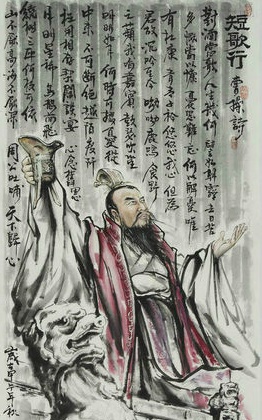 短歌行
曹操詩
對酒當歌人生幾何譬如朝露去日苦
多慨當以慷憂思難忘何以解憂唯
有杜康青青子衿悠悠我心但為
君故沉吟至今呦呦鹿鳴食野
之蘋我有嘉賓鼓瑟吹笙
明明如月何時可掇憂從
中來不可斷絕越陌度阡
枉用相存契闊談讌心念舊恩
月明星稀烏鵲南飛
繞樹三匝何枝可依
山不厭高海不厭深
周公吐哺天下歸心